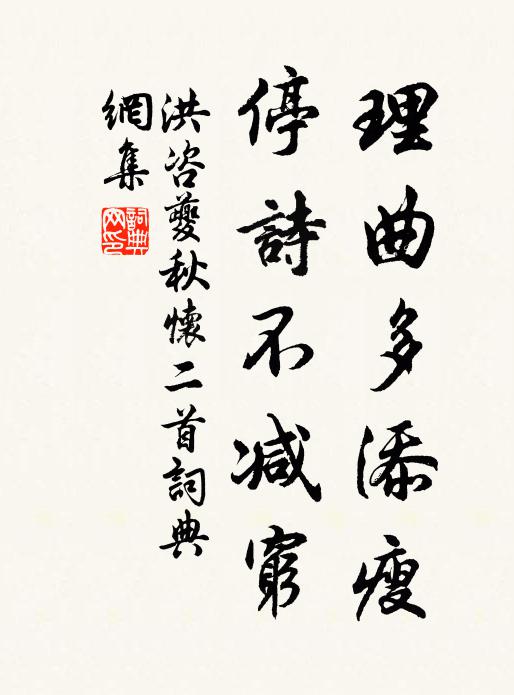 理曲多添瘦
停詩不減窮
洪咨夔秋懷二首詞典
網集
詞典
网印